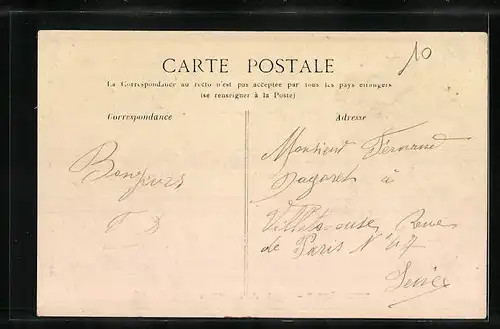 10
CARTE POSTALE
La Correspondance au recto n'est pas acceptée par tous les pays étrangers
(se renseigner à la Poste)
Correspondance
Adresse
Monsieur Fernand
à
Bonjours
Villetaneuse Rue
de Paris N° 47
Seine